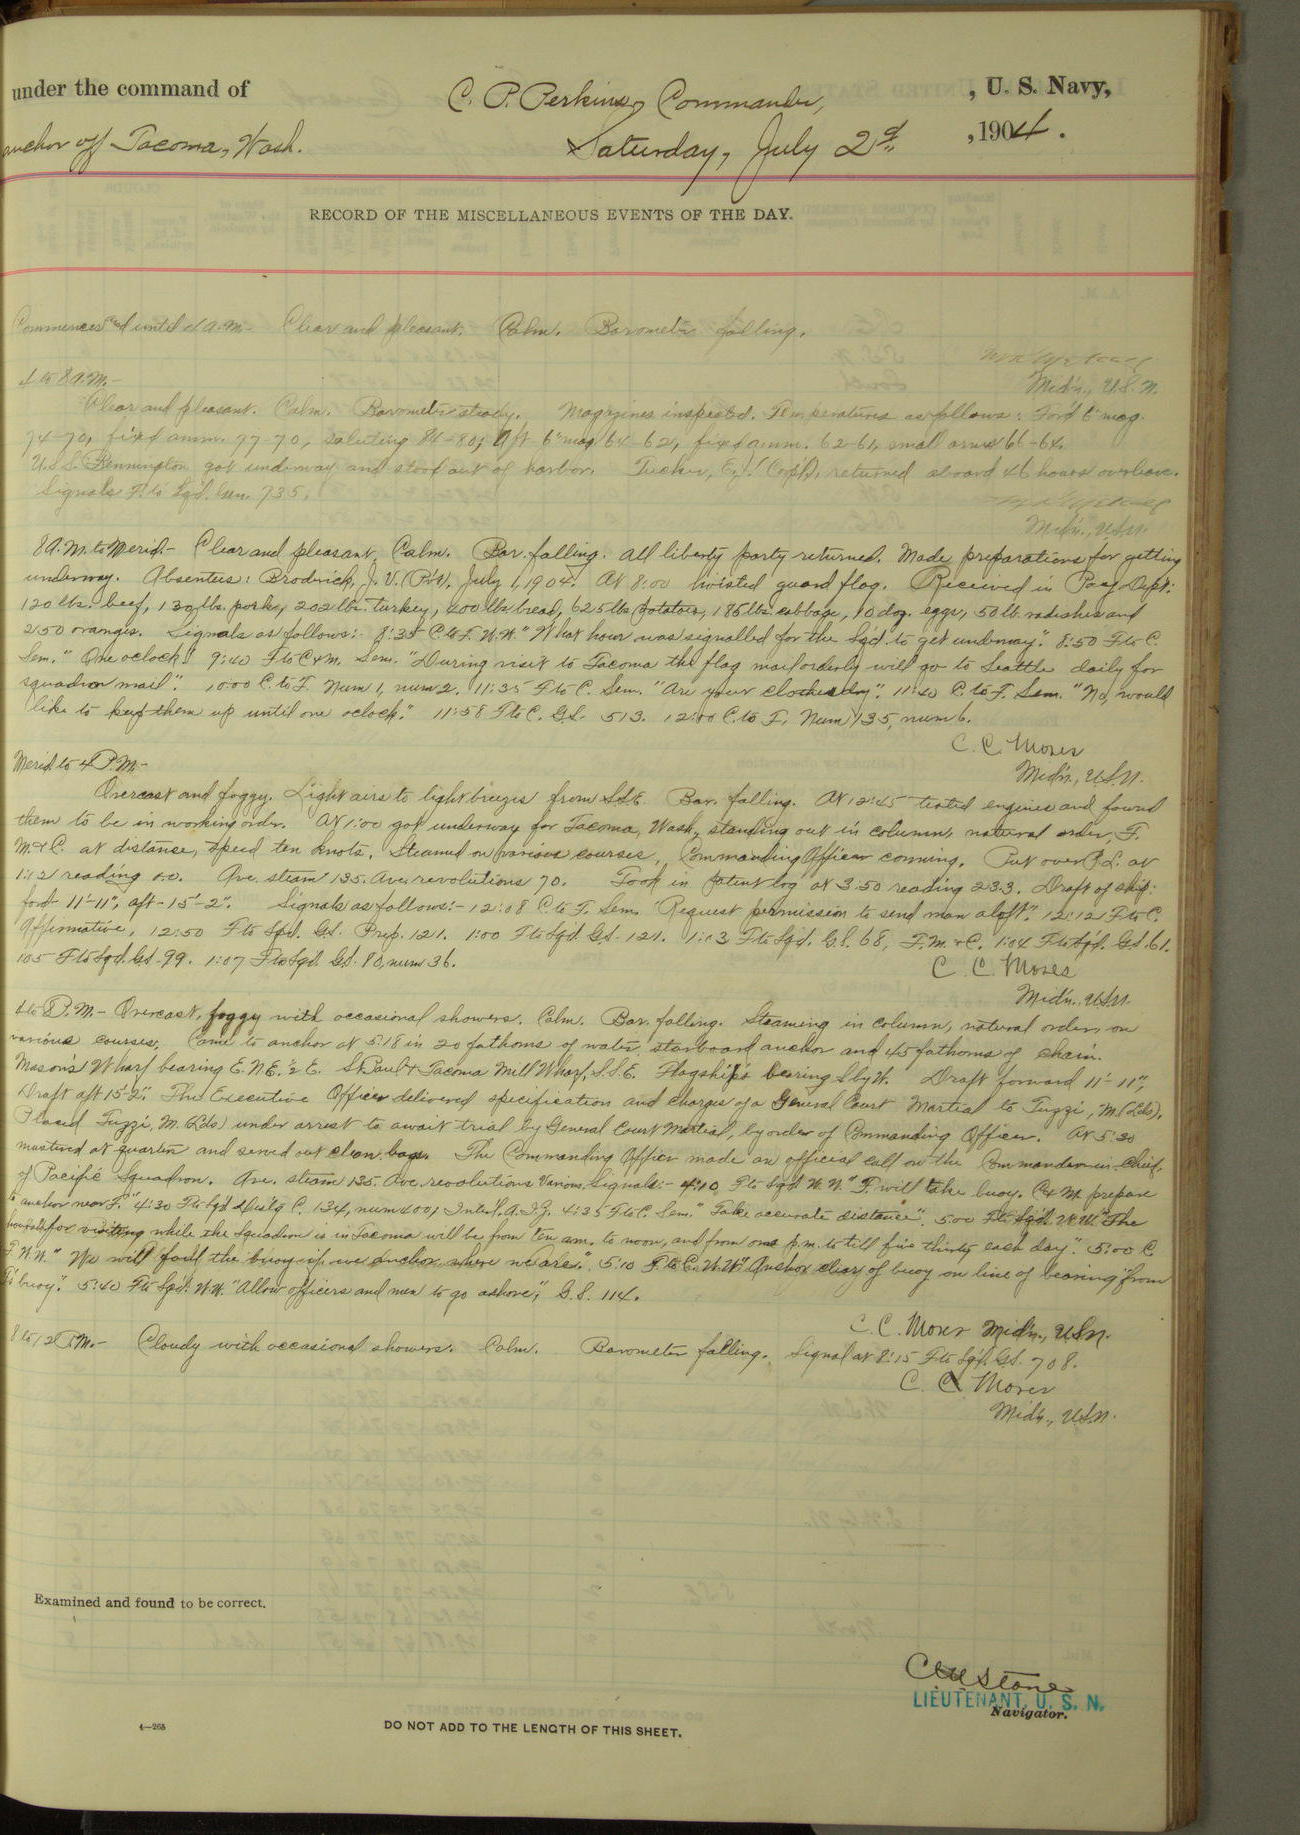 under the command of C. P. Perkins, Commander, , U. S. Navy,
anchor off Tacoma, Wash. Saturday, July 2d, , 1904.
RECORD OF THE MISCELLANEOUS EVENTS OF THE DAY.
Commences and until 4 a.m.- Clear and pleasant. Calm. Barometer falling.
4 to 8 a.m.-
Mid'n., U.S.N.
Clear and pleasant. Calm. Barometer steady. Magazines inspected. Temperatures as follows: For'd 6" mag.
74-70, fixed amm. 77-70, saluting 84-80; Aft 6" mag 64-62, fixed amm. 62-61, small arms 66-64.
U.S.S. Bennington got underway and stood out of harbor. Tucker, returned aboard 46 hours overleave.
Signals F. to Sqd. Gen. 735.
Mid'n., U.S.N.
8 A.M. to Merid.- Clear and pleasant. Calm. Bar. falling. All liberty party returned. Made preparations for getting
underway. Absentees: Brodrick, J. V. (P.V.) July 1, 1904. At 8:00 hoisted guard flag. Received in Pay Dept:
120 lbs. beef, 130 lbs. pork, 202 lbs. turkey, 200 lbs bread, 625 lbs potatoes, 185 lbs. cabbage, 10 doz. eggs, 50 lb. radishes and
250 oranges. Signals as follows:- 8:35 C. to F. W.W. "What hour was signalled for the Sqd. to get underway". 8:50 F to C.
Sem. "One oclock". 9:40 F to C & M. Sem. "During visit to Tacoma the flag mail orderly will go to Seattle daily for
squadron mail". 10:00 C. to F. Num 1, num 2. 11:35 F to C. Sem. "Are your clothes dry". 11:40 C. to F. Sem. "No, would
like to keep them up until one oclock." 11:58 F to C. G.S. 513. 12:00 C. to F. Num 135, num 6.
C. C. Moses
Merid to 4 P.M.- Mid'n., U.S.N.
Overcast and foggy. Light airs to light breezes from SSE. Bar. falling. At 12:45 tested engines and found
them to be in working order. At 1:00 got underway for Tacoma, Wash., standing out in column, natural order, F.
M. & C. at distance, speed ten knots. Steamed on various courses, Commanding Officer conning. Put over P.L. at
1:12 reading 0.0. Ave. steam 135. Ave. revolutions 70. Took in patent log at 3:50 reading 23.3. Draft of ship:
for'd 11'-11", aft - 15'-2". Signals as follows:- 12:08 C. to F. Sem. "Request permission to send man aloft". 12:12 F to C.
Affirmative. 12:50 F to Sqd. G.S. Prep. 121. 1:00 F to Sqd. G.S. 121. 1:03 F to Sqd. G.S. 68, F. M. & C. 1:04 F to Sqd. G.S. 61.
1:05 F to Sqd. G.S. 99. 1:07 F to Sqd. G.S. 80, num 36.
C. C. Moses
Mid'n., U.S.N.
4 to 8 P.M.- Overcast, foggy with occasional showers. Calm. Bar. falling. Steaming in column, natural order, on
various courses. Came to anchor at 5:18 in 20 fathoms of water, starboard anchor and 45 fathoms of chain.
Mason's Wharf bearing E.N.E. ½ E. St Paul & Tacoma Mill Wharf, S.S.E. Flagship's bearing S by W. Draft forward 11'-11",
Draft aft 15'-2". The Executive Officer delivered specification and charges of a General Court Martial to Tuzzi, M. (Lds).
Placed Tuzzi, M. (Lds) under arrest to await trial by General Court Martial, by order of Commanding Officer. At 5:30
mustered at quarters and served out clean bags. The Commanding Officer made an official call on the Commander-in-Chief,
of Pacific Squadron. Ave. steam 135. Ave. revolutions Various. Signals:- 4:10 F to Sqd. W.W. "F. will take buoy. C & M. prepare
to anchor near F." 4:30 F to Sqd Dis'l'g C. 134, num 400, Int'l. A.I.G. 4:35 F to C. Sem. "Take accurate distance". 5:00 F to Sqd. W.W. "The
hours for visiting while the Squadron is in Tacoma will be from ten am. to noon, and from one p.m. to till five thirty each day". 5:00 C.
F. W.W. "We will foul the buoy if we anchor where we are." 5:10 F. to C. W.W. "Anchor clear of buoy on line of bearing from
F's buoy". 5:40 F to Sqd. W.W. "Allow officers and men to go ashore", G.S. 114.
C. C. Moses Mid'n., U.S.N.
8 to 12 P.M.- Cloudy with occasional showers. Calm. Barometer falling. Signal at 8:15 F to Sqd. G.S. 708.
C. C. Moses
Mid'n., U.S.N.
Examined and found to be correct.
C M Stone
LIEUTENANT, U. S. N.
Navigator.
4-265
DO NOT ADD TO THE LENGTH OF THIS SHEET.